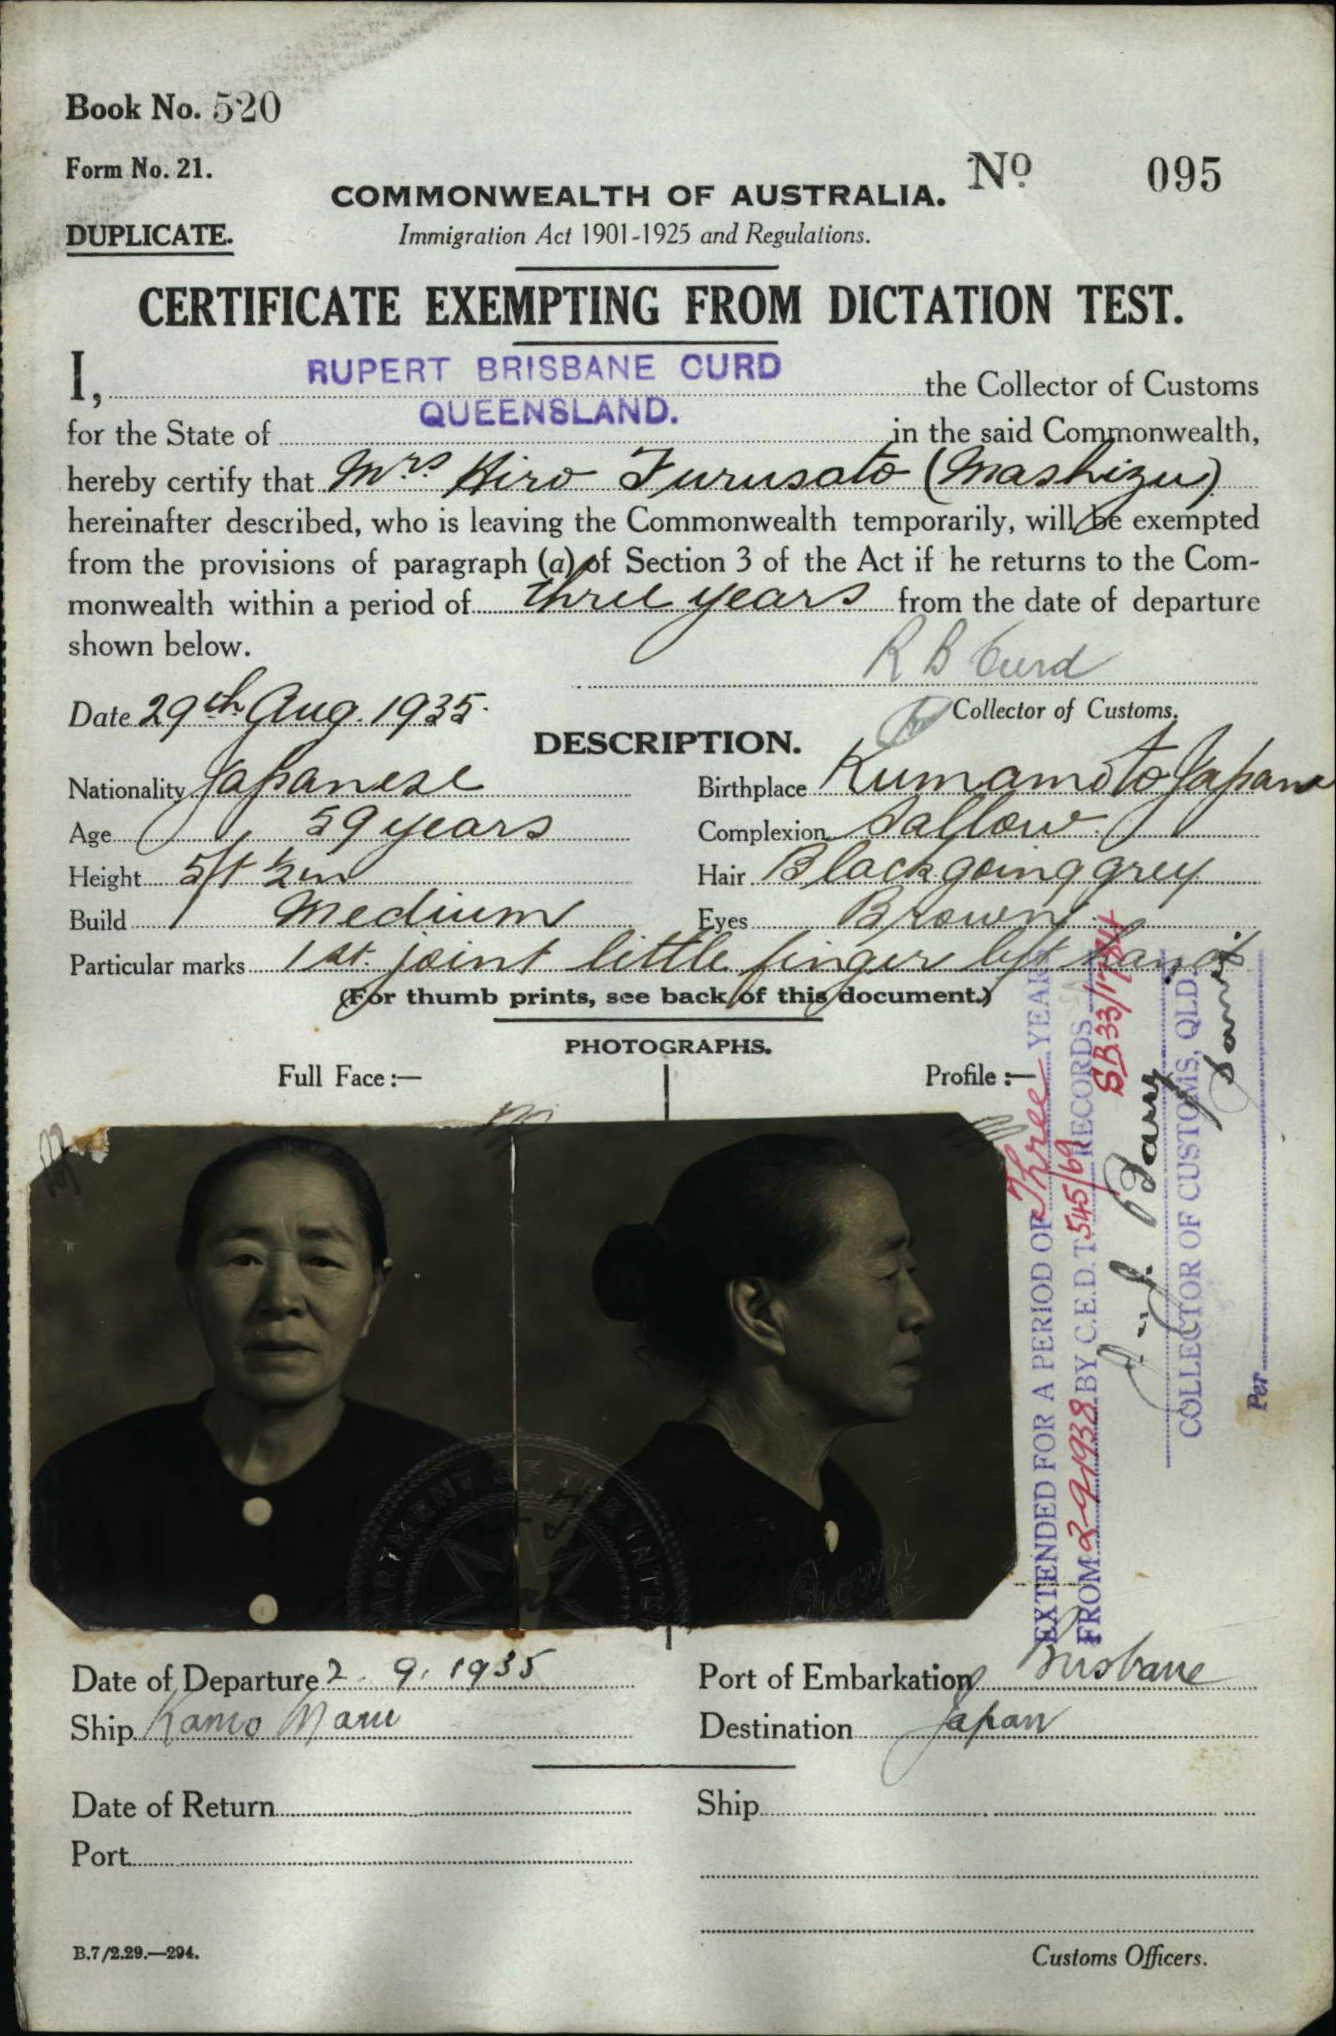 Book No. 520
Form No. 21.
No 095
COMMONWEALTH OF AUSTRALIA.
DUPLICATE.
Immigration Act 1901-1925 and Regulations.
CERTIFICATE EXEMPTING FROM DICTATION TEST.
I, RUPERT BRISBANE CURD the Collector of Customs
for the State of QUEENSLAND. in the said Commonwealth,
hereby certify that Mrs Hiro Furusato (Mashizu)
hereinafter described, who is leaving the Commonwealth temporarily, will be exempted
from the provisions of paragraph (a) of Section 3 of the Act if he returns to the Com-
monwealth within a period of three years from the date of departure
shown below.
R B Curd
Date 29th Aug. 1935.
Collector of Customs.
DESCRIPTION.
Nationality Japanese
Birthplace Kumamoto Japan
Age 59 years
Complexion Sallow
Height 5ft ½in
Hair Black going grey
Build Medium
Eyes Brown
Particular marks 1st joint little finger left hand
(For thumb prints, see back of this document.)
PHOTOGRAPHS.
Full Face :—
Profile :—
EXTENDED FOR A PERIOD OF Three YEAR
FROM 2-9-1938 BY C.E.D.T. 545/69 RECORDS
SB33/1784
COLLECTOR OF CUSTOMS, QLD.
Per
Date of Departure 2. 9. 1935
Port of Embarkation Brisbane
Ship Kamo Maru
Destination Japan
Date of Return
Ship
Port
B.7/2.29.—294.
Customs Officers.